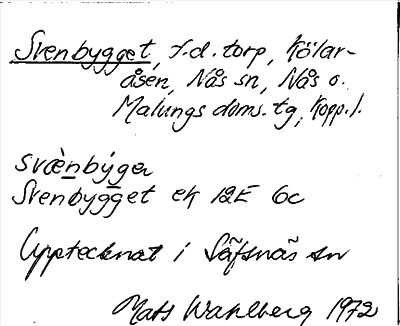 Svenbygget, f.d. torp, Kölar-
åsen, Nås sn, Nås o.
Malungs doms. tg, Kopp. l.
svæ̀nbýger
Svenbygget ek 12E 6c
Upptecknat i Säfsnäs sn
Mats Wahlberg 1972